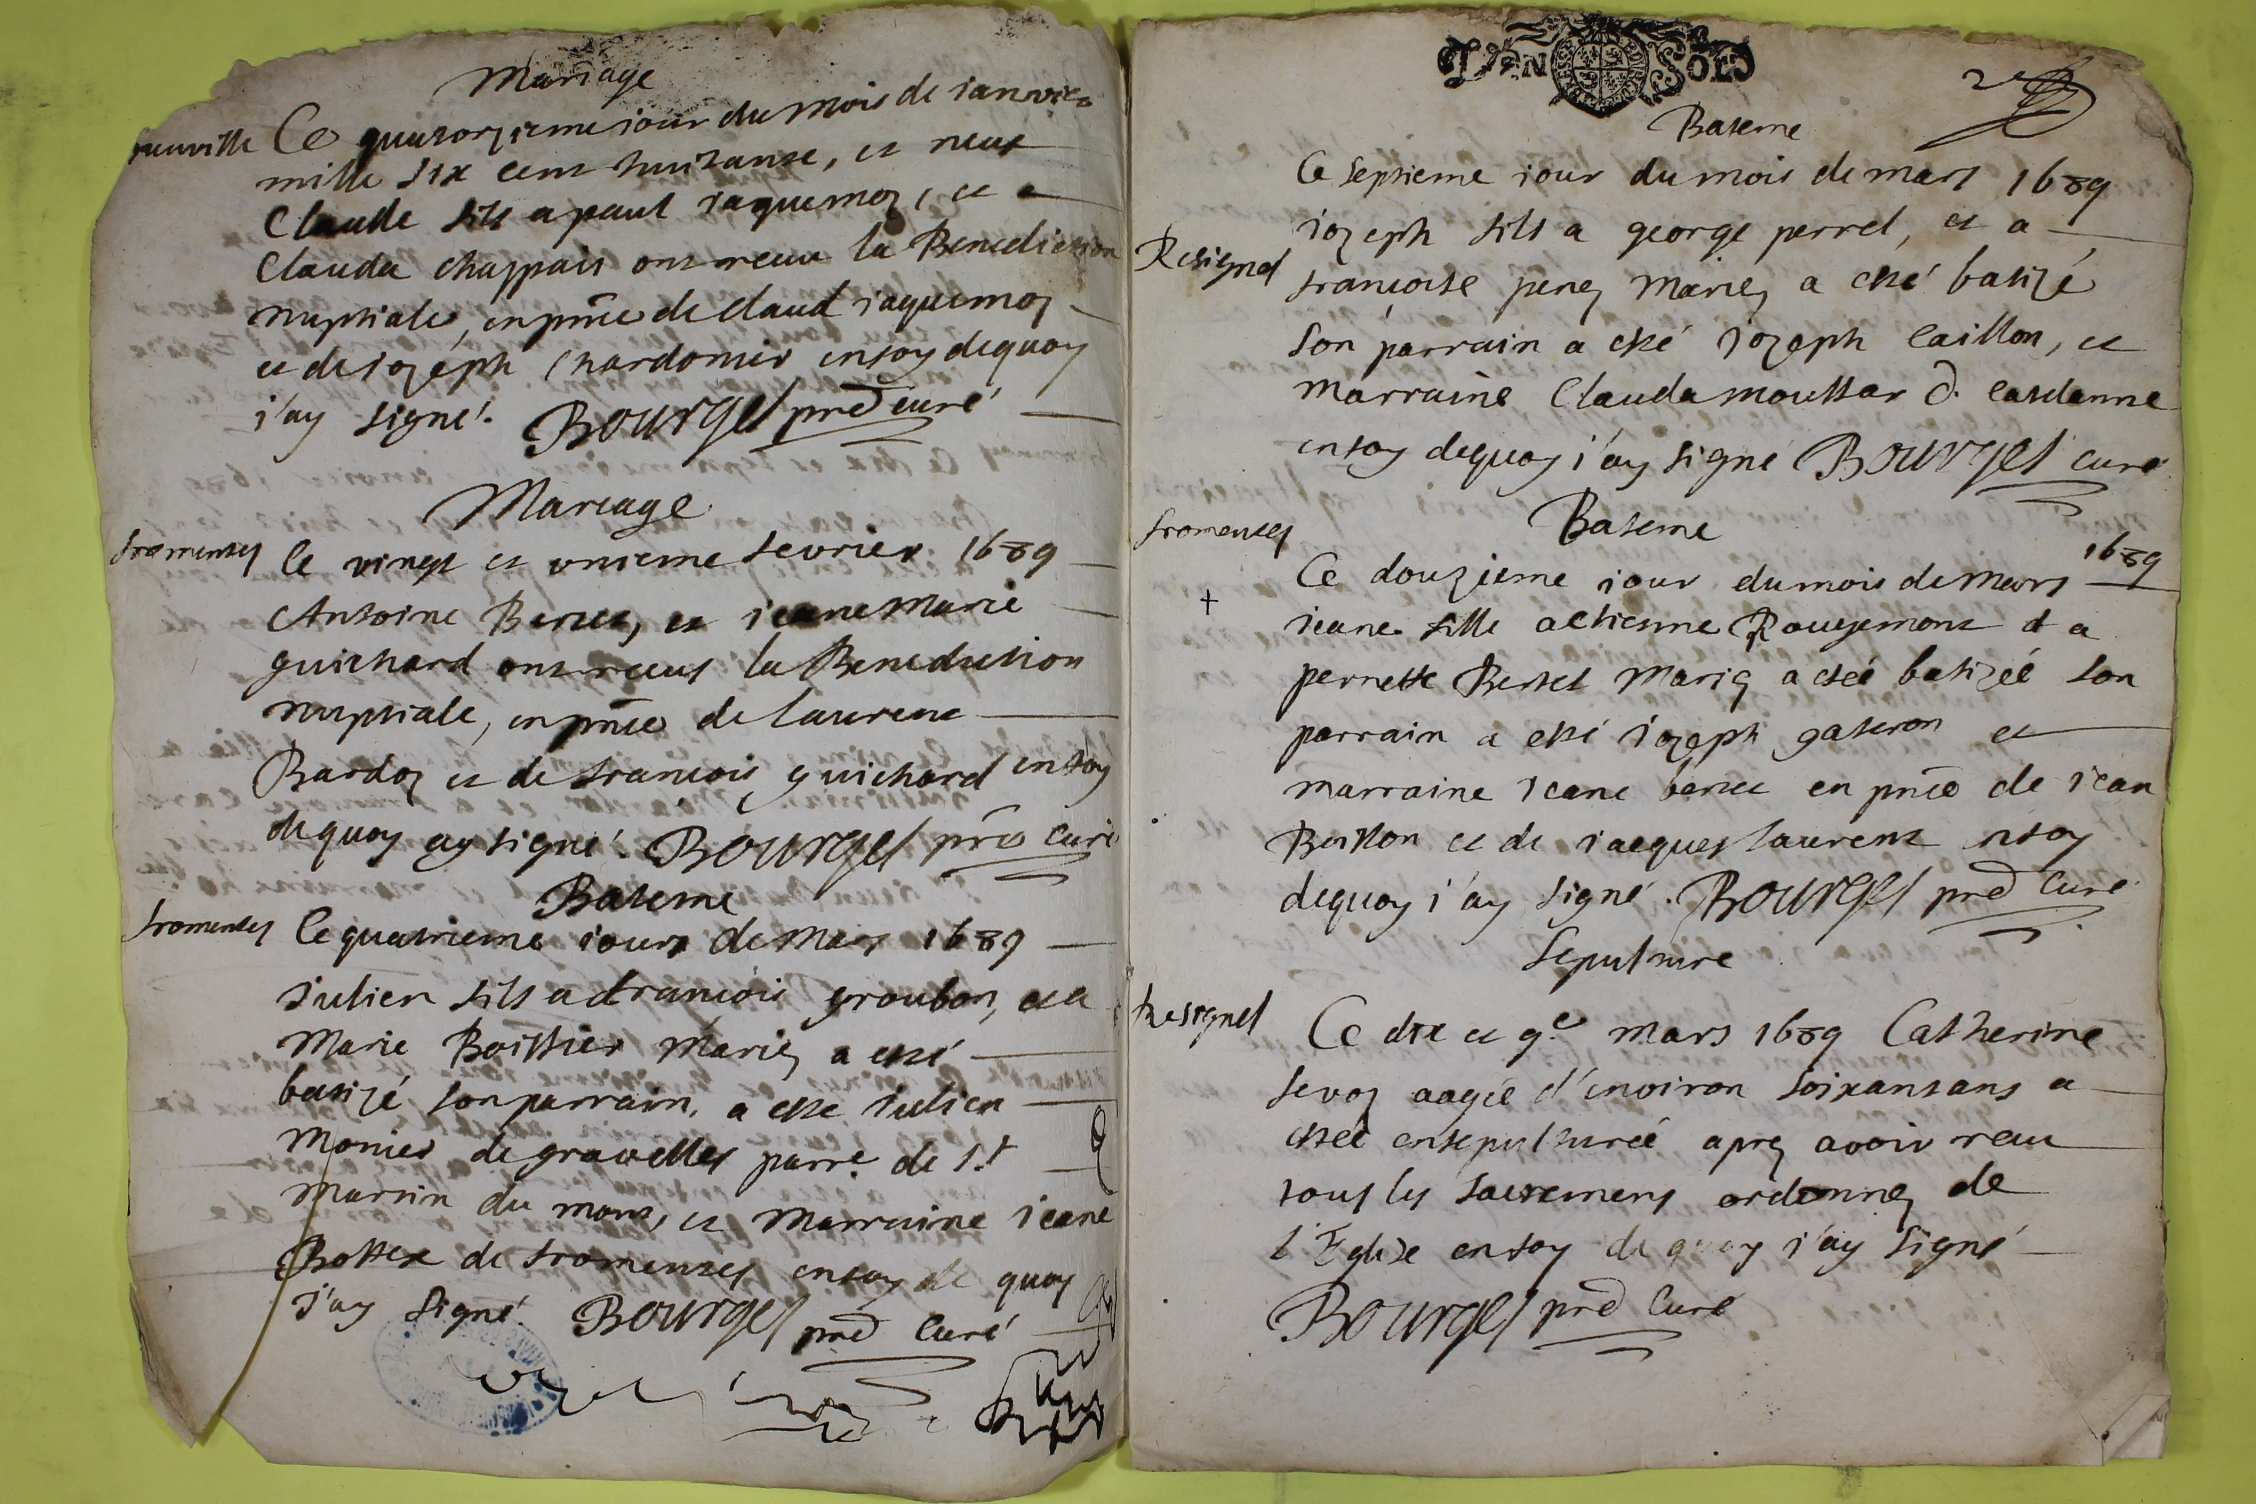 Mariage
Ce quatorzieme iour du mois de ianvier
mille six cent huitante, et neuf
Claude fils a paul iaquemoz, et a
Clauda chappais ont receu la Benediction
nuptiale, en pñce de Claud iaquemoz
et de iozeph Chardonier en foy dequoy
i'ay signé. Bourges pred curé
Mariage
fromentes
Ce vingt et unieme fevrier 1689
Antoine Bertet, et ieane Marie
guichard ont receus la Benediction
nuptiale, en pñce de laurent
Bardoz et de francois guichard en foy
dequoy ay signé. Bourges pre curé
Bateme
fromentes
Ce quatrieme iour de Mars 1689
Julien fils a francois groubon, et a
Marie Boissier Mariez a esté
batizé son parrain, a esté Julien
Monier de gravelles parre de St
Martin du mont, et Marraine ieane
Bottex de fromentes en foy de quoy
j'ay signé. Bourges pred Curé
SOLS
2e
Bateme
Ce Septieme iour du mois de mars 1689
Resignel
iozeph fils a george perrel, et a
francoise perez Mariez a esté batizé
son parrain a esté iozeph Caillon, et
marraine Clauda mouttar
en foy dequoy i'ay signé Bourges curé
fromentes
Bateme
Ce douzieme iour du mois de Mars 1689
+
ieane fille a etienne Rougemont et a
pernette Bertet Mariez a esté batizée son
parrain a esté iozeph gatheron et
marraine ieane bertet en pñce de iean
Boisson et de iacques laurent en foy
dequoy i'ay signé. Bourges pred Curé
Sepulture
Resignel
Ce dix et 9e mars 1689 Catherine
aagée d'environ soixant ans a
estée ensepulturée aprez avoir receu
tous les sacremens ordonnez de
l'Eglize en foy de quoy i'ay signé
Bourges pred Curé